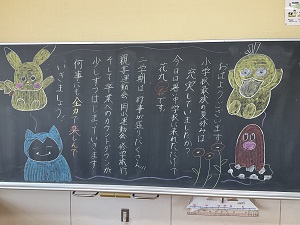 おはようございます。
小学校最後の夏休みは
充実していましたか？
今日は元気に学校に来れただけで
花丸です。
二学期は行事が盛りだくさん!!
親善運動会、岡小運動会、修学旅行
そして卒業へのカウントダウンが
少しずつはじまっていきます。
何事にも全力で楽しんで
いきましょう！